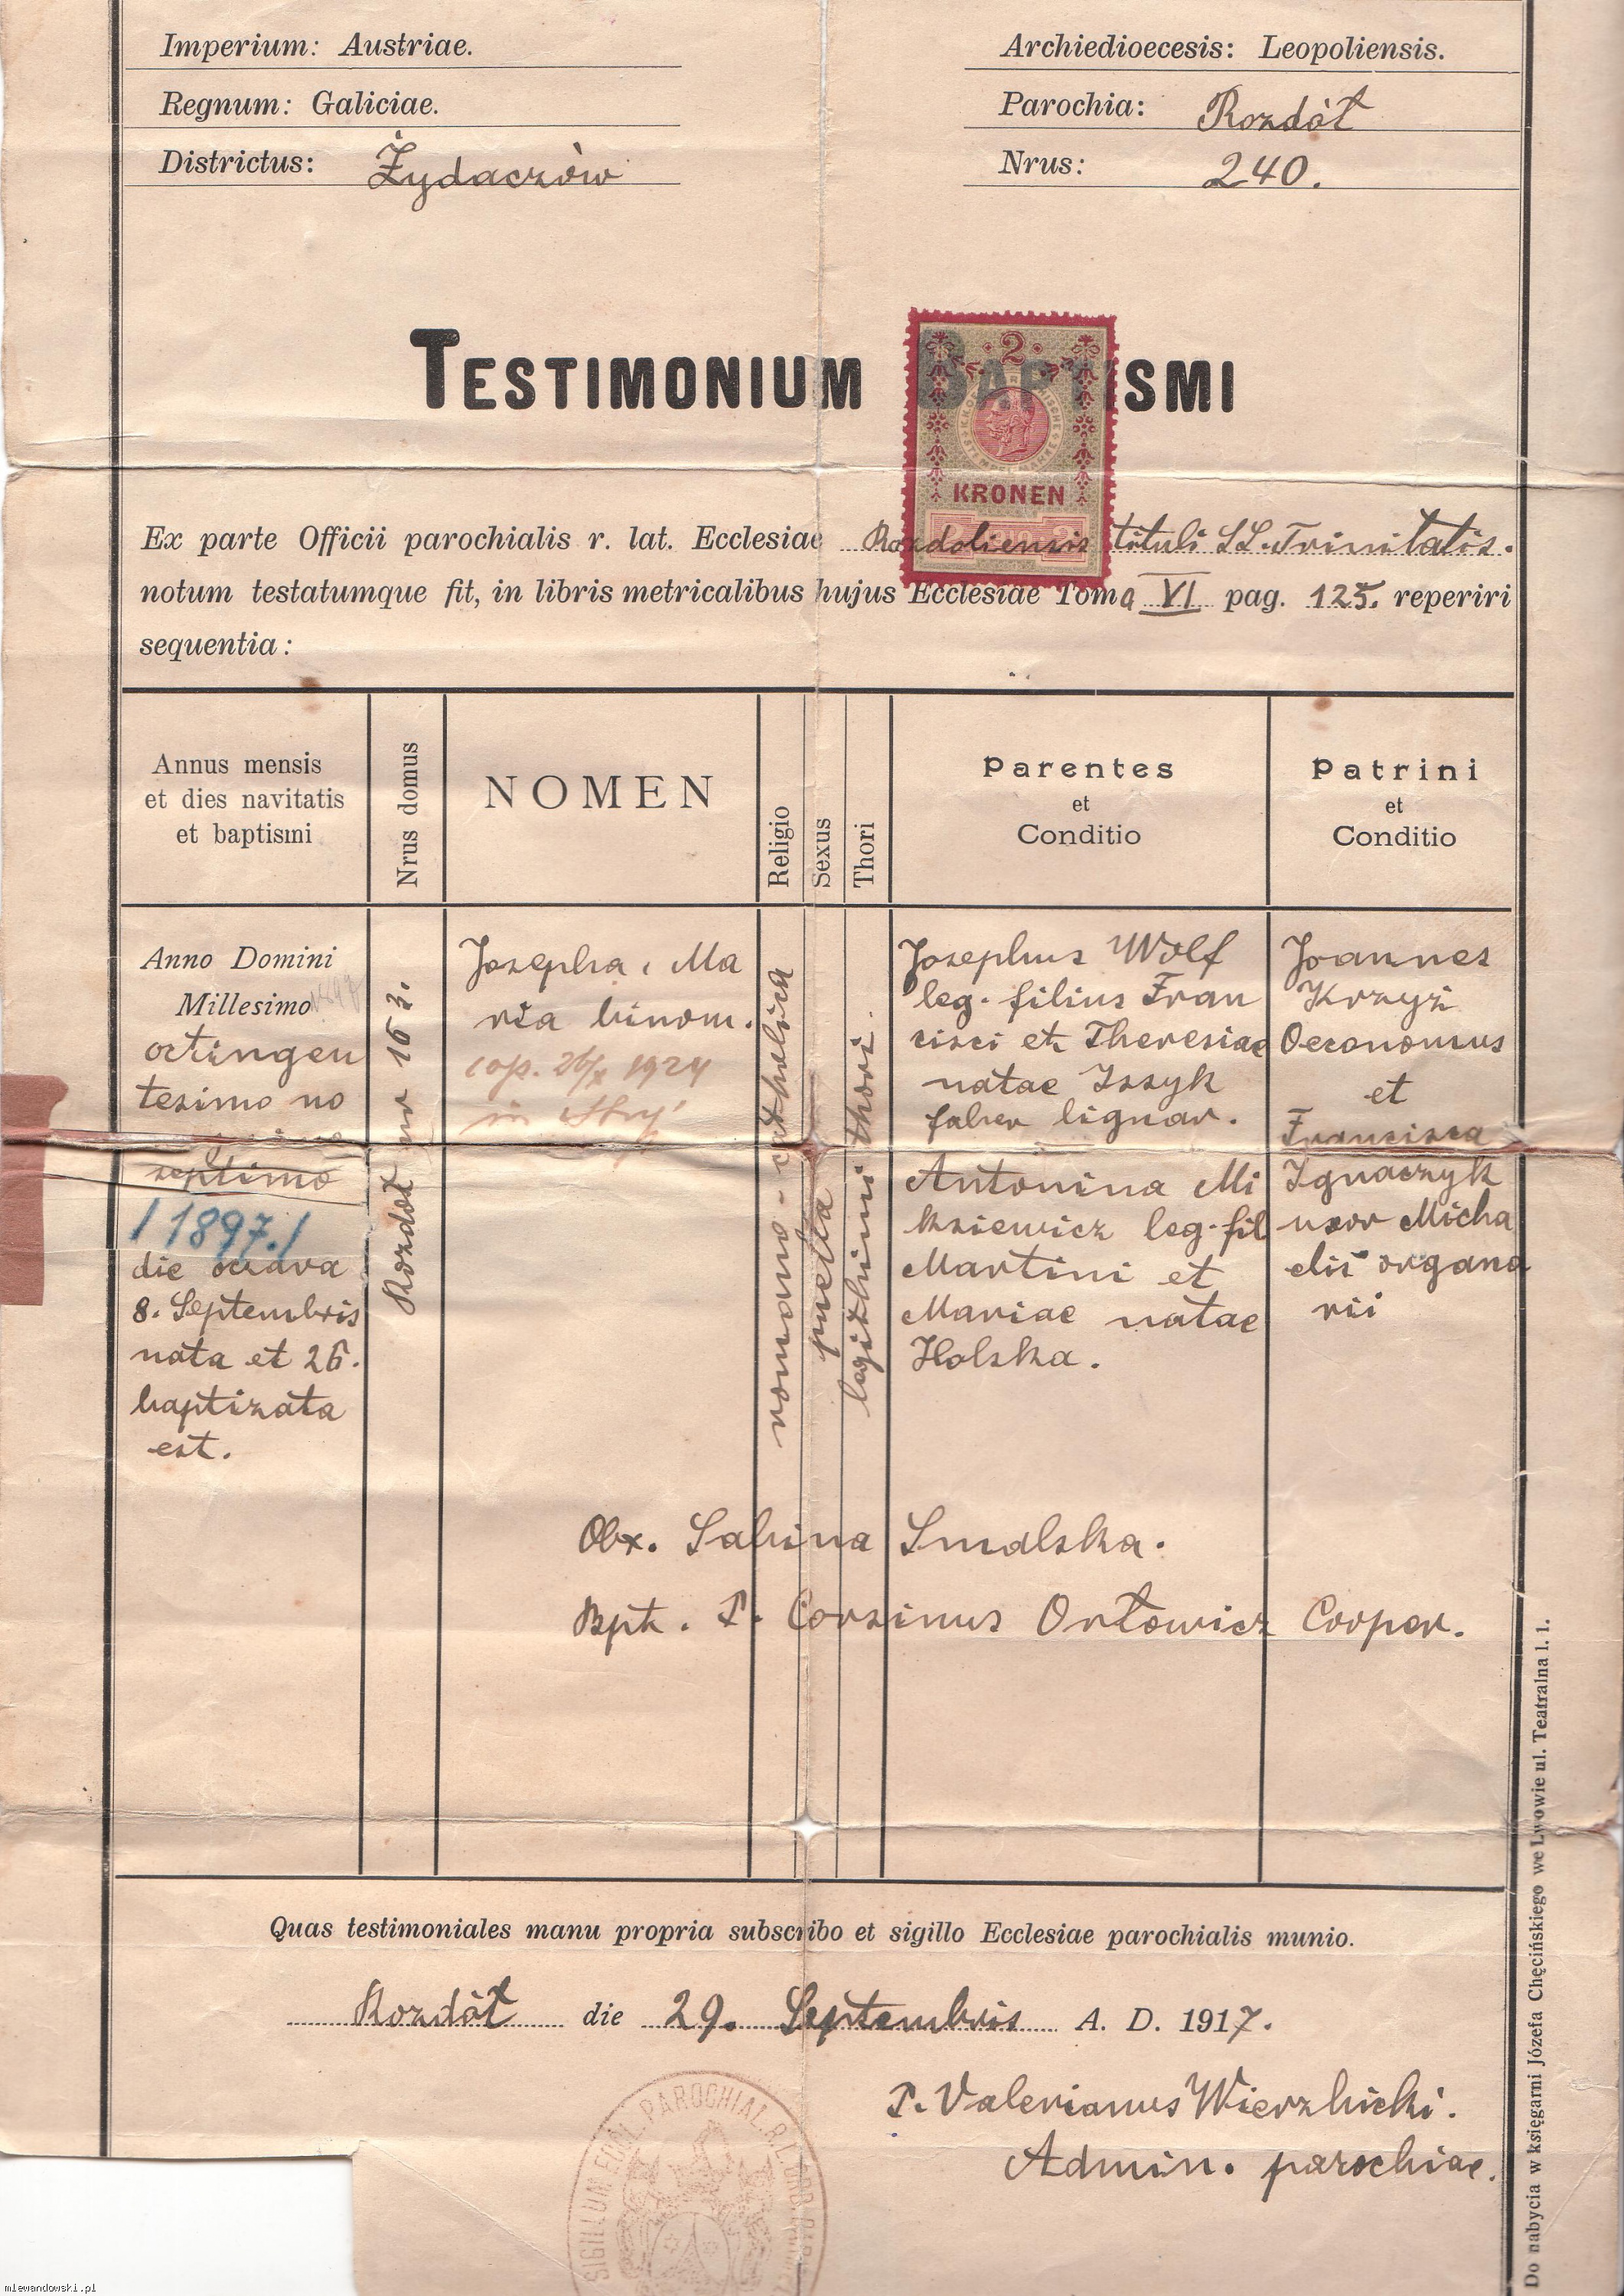 Imperium: Austriae.
Archiedioecesis: Leopoliensis.
Regnum: Galiciae.
Parochia: Rozdół
Districtus: Żydaczów
Nrus: 240.
TESTIMONIUM BAPTISMI
2
KRONEN
Ex parte Officii parochialis r. lat. Ecclesiae Rozdoliensis tituli SS. Trinitatis.
notum testatumque fit, in libris metricalibus hujus Ecclesiae Tomo VI pag. 125. reperiri
sequentia:
Annus mensis
et dies navitatis
et baptismi
Nrus domus
NOMEN
Religio
Sexus
Thori
Parentes
et
Conditio
Patrini
et
Conditio
Anno Domini
Millesimo 1897
octingen
tesimo no
septimo
/1897./
die octava
8. Septembris
nata et 26.
baptizata
est.
Rozdół nr 163.
Josepha, Ma
ria binom.
cop. 26/X 1924
in Stryj
romano-catholica
puella
legithimi thori.
Josephus Wolf
leg. filius Fran
cisci et Theresiae
natae Iszyk
faber lignar.
Antonina Mi
ksiewicz leg. fil
Martini et
Mariae natae
Holska.
Joannes
Krzyżi
Oeconomus
et
Francisca
Ignaczyk
uxor Micha
elis organa
rii
Obx. Sabina Smalska.
Bpt. P. Corsinus Orłowicz Cooper.
Quas testimoniales manu propria subscribo et sigillo Ecclesiae parochialis munio.
Rozdół die 29. Septembris A. D. 1917.
P. Valerianus Wierzbicki.
Admin. parochiae.
SIGILLUM PAROCHIAL. R. L.
Do nabycia w księgarni Józefa Chęcińskiego we Lwowie ul. Teatralna l. 1.
mlewandowski.pl